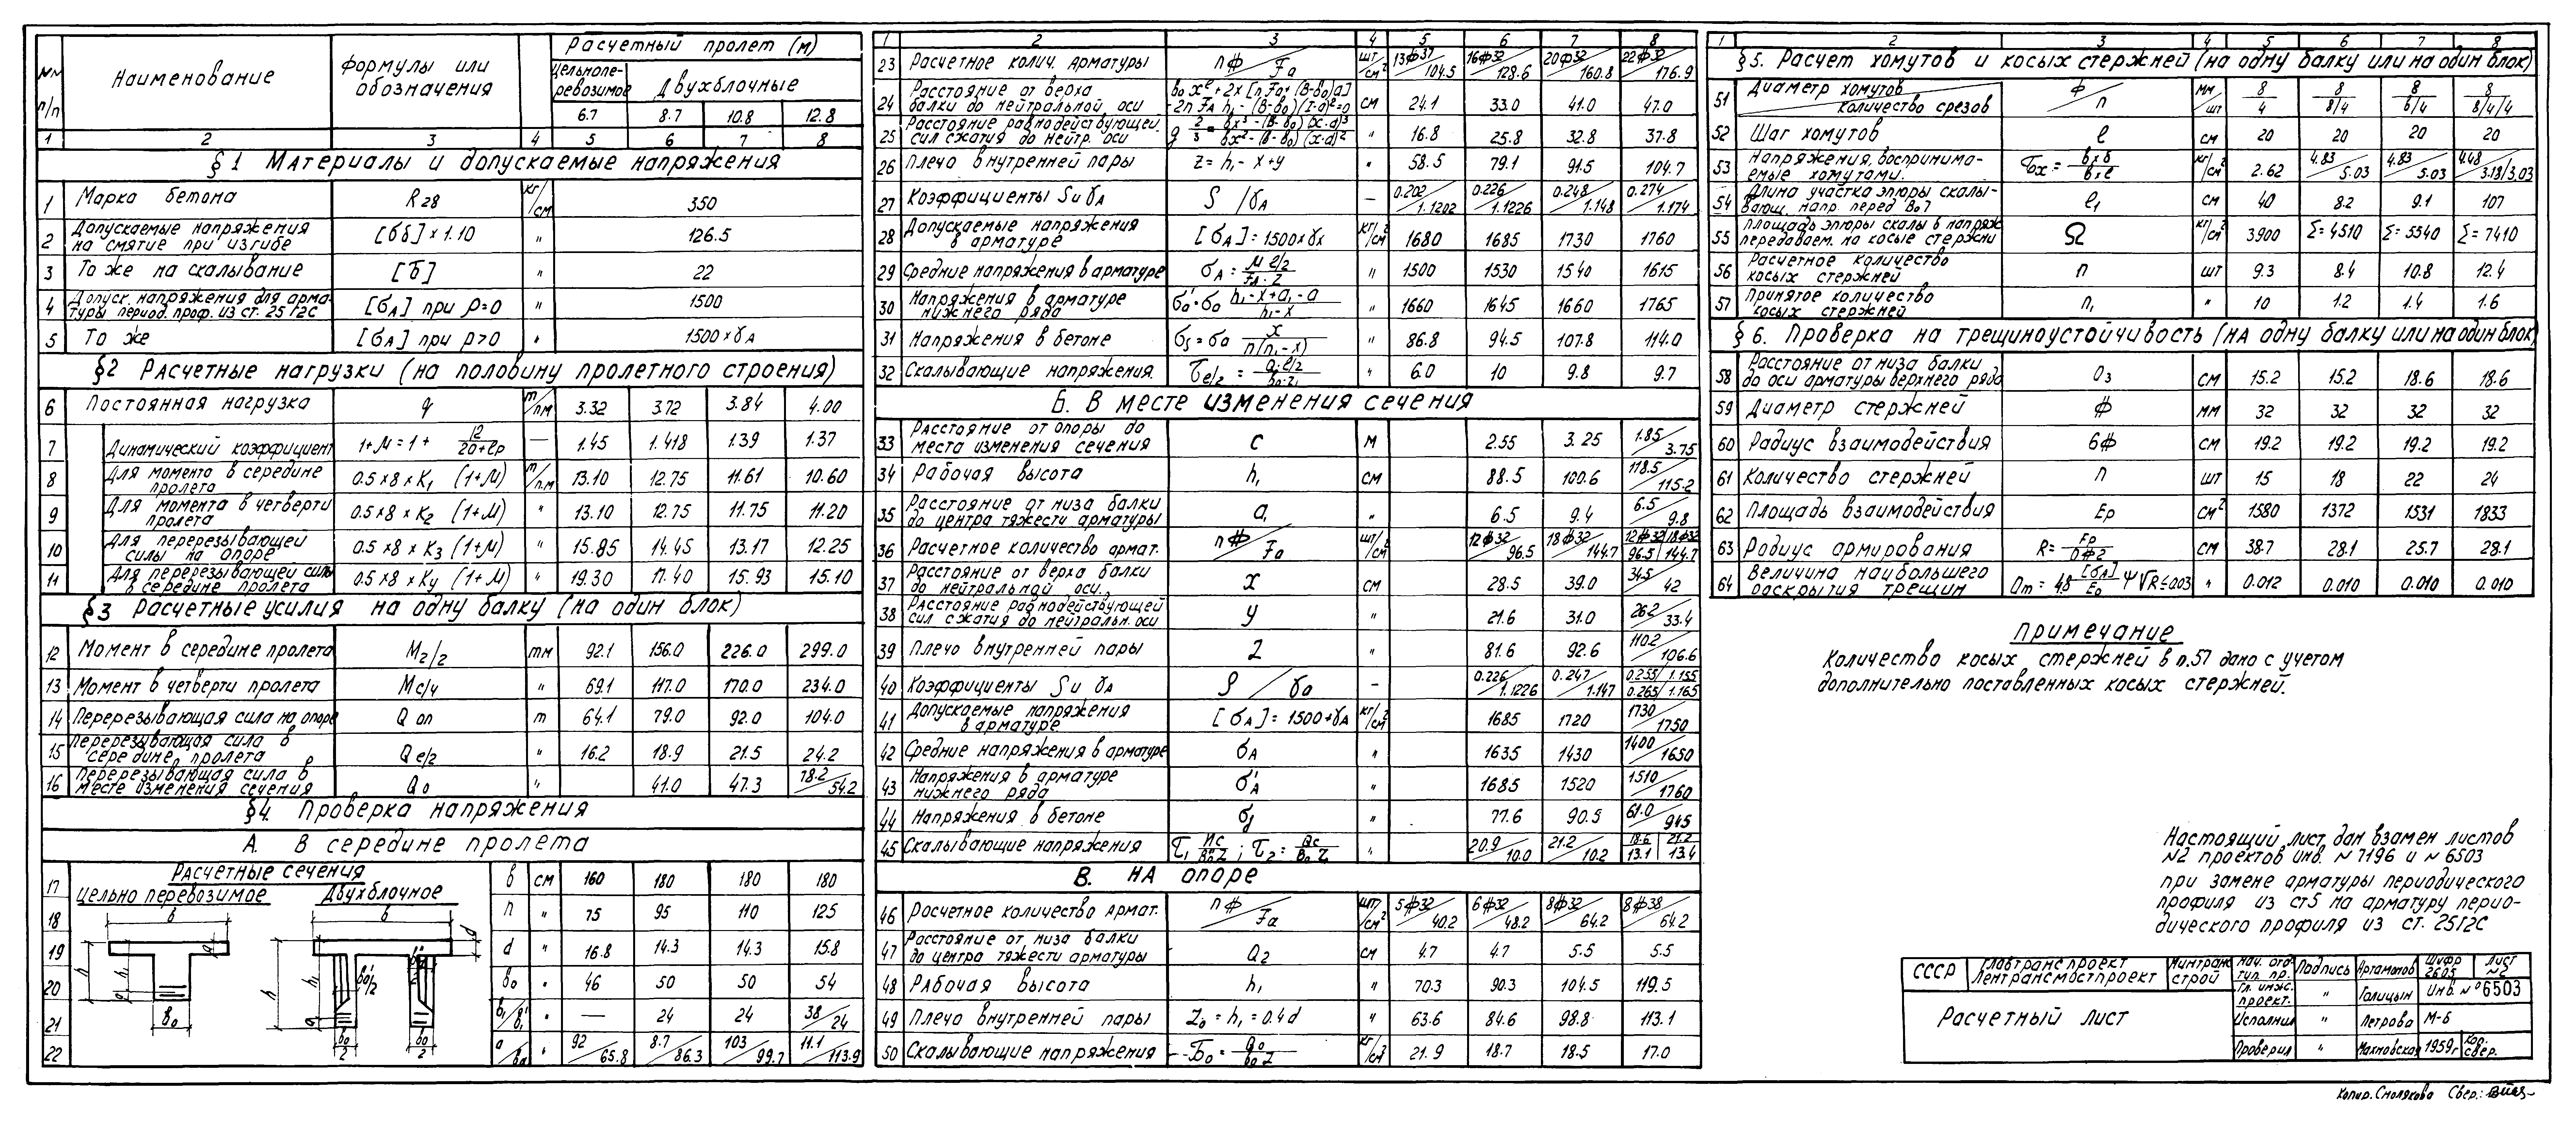 NN п/п Наименование Формулы или обозначения Расчетный пролет (м)
Цельнопе-ревозимое Двухблочные
6.7 8.7 10.8 12.8
1 2 3 4 5 6 7 8
§1 Материалы и допускаемые напряжения
1 Марка бетона R28 кг/см 350
2 Допускаемые напряжения на смятие при изгибе [σб]×1.10 " 126.5
3 То же на скалывание [τ] " 22
4 Допуск. напряжения для арма-туры период. проф. из ст. 25Г2С [σA] при ρ=0 " 1500
5 То же [σA] при ρ>0 " 1500×γA
§2 Расчетные нагрузки (на половину пролетного строения)
6 Постоянная нагрузка q т/пм 3.32 3.72 3.84 4.00
7 Динамический коэффициент 1+м=1+ 12/20+ℓр — 1.45 1.418 1.39 1.37
8 Для момента в середине пролета 0.5×8×K1 (1+м) т/п.м 13.10 12.75 11.61 10.60
9 Для момента в четверти пролета 0.5×8×K2 (1+м) " 13.10 12.75 11.75 11.20
10 Для перерезывающей силы на опоре 0.5×8×K3 (1+м) " 15.85 14.45 13.17 12.25
11 Для перерезывающей силы в середине пролета 0.5×8×K4 (1+м) " 19.30 17.40 15.93 15.10
§3 Расчетные усилия на одну балку (на один блок)
12 Момент в середине пролета M2/2 тм 92.1 156.0 226.0 299.0
13 Момент в четверти пролета Mc/4 " 69.1 117.0 170.0 234.0
14 Перерезывающая сила на опоре Q оп т 64.1 79.0 92.0 104.0
15 Перерезывающая сила в середине пролета Qe/2 " 16.2 18.9 21.5 24.2
16 Перерезывающая сила в месте изменения сечения Q0 " 41.0 47.3 78.2/54.2
§4. Проверка напряжения
А. В середине пролета
Расчетные сечения
Цельно перевозимое Двухблочное
17 в см 160 180 180 180
18 h " 75 95 110 125
19 d " 16.8 14.3 14.3 15.8
20 в0 " 46 50 50 54
21 в1/в1' " — 24 24 38/24
22 а " 92/65.8 8.7/86.3 103/99.7 11.1/113.9
1 2 3 4 5 6 7 8
23 Расчетное колич. арматуры nф/Fa шт/см2 13ф37/104.5 16ф32/128.6 20ф32/160.8 22ф32/176.9
24 Расстояние от верха балки до нейтральной оси см 24.1 33.0 41.0 47.0
25 Расстояние равнодействующей сил сжатия до нейтр. оси " 16.8 25.8 32.8 37.8
26 Плечо внутренней пары z=h1-x+y " 58.5 79.1 91.5 104.7
27 Коэффициенты ρ и γA ρ/γA — 0.202/1.1202 0.226/1.1226 0.248/1.148 0.274/1.174
28 Допускаемые напряжения в арматуре [σA]=1500×γx кг/см2 1680 1685 1730 1760
29 Средние напряжения в арматуре σA= м e/2/FA·z " 1500 1530 1540 1615
30 Напряжения в арматуре нижнего ряда h1-x+a1-a/h1-x " 1660 1645 1660 1765
31 Напряжения в бетоне x/n(h1-x) " 86.8 94.5 107.8 114.0
32 Скалывающие напряжения. τe/2 = " 6.0 10 9.8 9.7
Б. В месте изменения сечения
33 Расстояние от опоры до места изменения сечения C м 2.55 3.25 1.85/3.75
34 Рабочая высота h1 см 88.5 100.6 118.5/115.2
35 Расстояние от низа балки до центра тяжести арматуры a1 " 6.5 9.4 6.5/9.8
36 Расчетное количество армат. nф/Fa шт/см 12ф32/96.5 18ф32/144.7 12ф32/96.5 18ф32/144.7
37 Расстояние от верха балки до нейтральной оси. x см 28.5 39.0 34.5/42
38 Расстояние равнодействующей сил сжатия до нейтральн. оси y " 21.6 31.0 26.2/33.4
39 Плечо внутренней пары Z " 81.6 92.6 110.2/106.6
40 Коэффициенты ρ и γA ρ/γ0 — 0.226/1.1226 0.247/1.147 0.255/1.155 0.265/1.165
41 Допускаемые напряжения в арматуре [σA]=1500+γA кг/см2 1685 1720 1730/1750
42 Средние напряжения в арматуре σA " 1635 1430 1400/1650
43 Напряжения в арматуре нижнего ряда σ'A " 1685 1520 1510/1760
44 Напряжения в бетоне σ " 77.6 90.5 61.0/94.5
45 Скалывающие напряжения τ1 ; τ2= Qc/в0 Z " 20.9/10.0 21.2/10.2 18.6/13.1 21.2/13.4
В. На опоре
46 Расчетное количество армат. nф/Fa шт/см2 5ф32/40.2 6ф32/48.2 8ф32/64.2 8ф38/64.2
47 Расстояние от низа балки до центра тяжести арматуры Q2 см 4.7 4.7 5.5 5.5
48 Рабочая высота h1 " 70.3 90.3 104.5 119.5
49 Плечо внутренней пары Z0=h1=0.4d " 63.6 84.6 98.8 113.1
50 Скалывающие напряжения = Q0/в0 Z кг/см2 21.9 18.7 18.5 17.0
1 2 3 4 5 6 7 8
§5. Расчет хомутов и косых стержней (на одну балку или на один блок)
51 Диаметр хомутов/количество срезов ф/n мм/шт 8/4 8/8/4 8/8/4 8/8/4/4
52 Шаг хомутов ℓ см 20 20 20 20
53 Напряжения, воспринима-емые хомутами. кг/см2 2.62 4.83/5.03 4.83/5.03 4.48/3.18/3.03
54 Длина участка эпюры скалы-вающ. напр. перед ℓ1 см 40 8.2 9.1 107
55 Площадь эпюры скалы в напряж передаваем. на косые стержни Ω кг/см2 3900 Σ=4510 Σ=5540 Σ=7410
56 Расчетное количество косых стержней n шт 9.3 8.4 10.8 12.4
57 Принятое количество косых стержней n1 " 10 1.2 1.4 1.6
§6. Проверка на трещиноустойчивость (на одну балку или на один блок)
58 Расстояние от низа балки до оси арматуры верхнего ряда O3 см 15.2 15.2 18.6 18.6
59 Диаметр стержней ф мм 32 32 32 32
60 Радиус взаимодействия 6ф см 19.2 19.2 19.2 19.2
61 Количество стержней n шт 15 18 22 24
62 Площадь взаимодействия Eр см2 1580 1372 1531 1833
63 Радиус армирования R= см 38.7 28.1 25.7 28.1
64 Величина наибольшего раскрытия трещин am=4.8 [σA]/E0 ψ√R≤0.03 " 0.012 0.010 0.010 0.010
Примечание
Количество косых стержней в п.57 дано с учетом
дополнительно поставленных косых стержней.
Настоящий лист дан взамен листов
N2 проектов инв. N 7196 и N 6503
при замене арматуры периодического
профиля из ст5 на арматуру перио-
дического профиля из ст. 25Г2С
СССР Главтранспроект Лентрансмостпроект Минтранс строй
Расчетный лист
Нач. отд. тип. пр. Подпись Артамонов Шифр 2605 Лист N2
Гл. инж. проект. " Голицын Инв. N° 6503
Исполнил " Петрова М-б
Проверил " Махновская 1959г Кор. свер.
Копир. Смолякова Свер.: